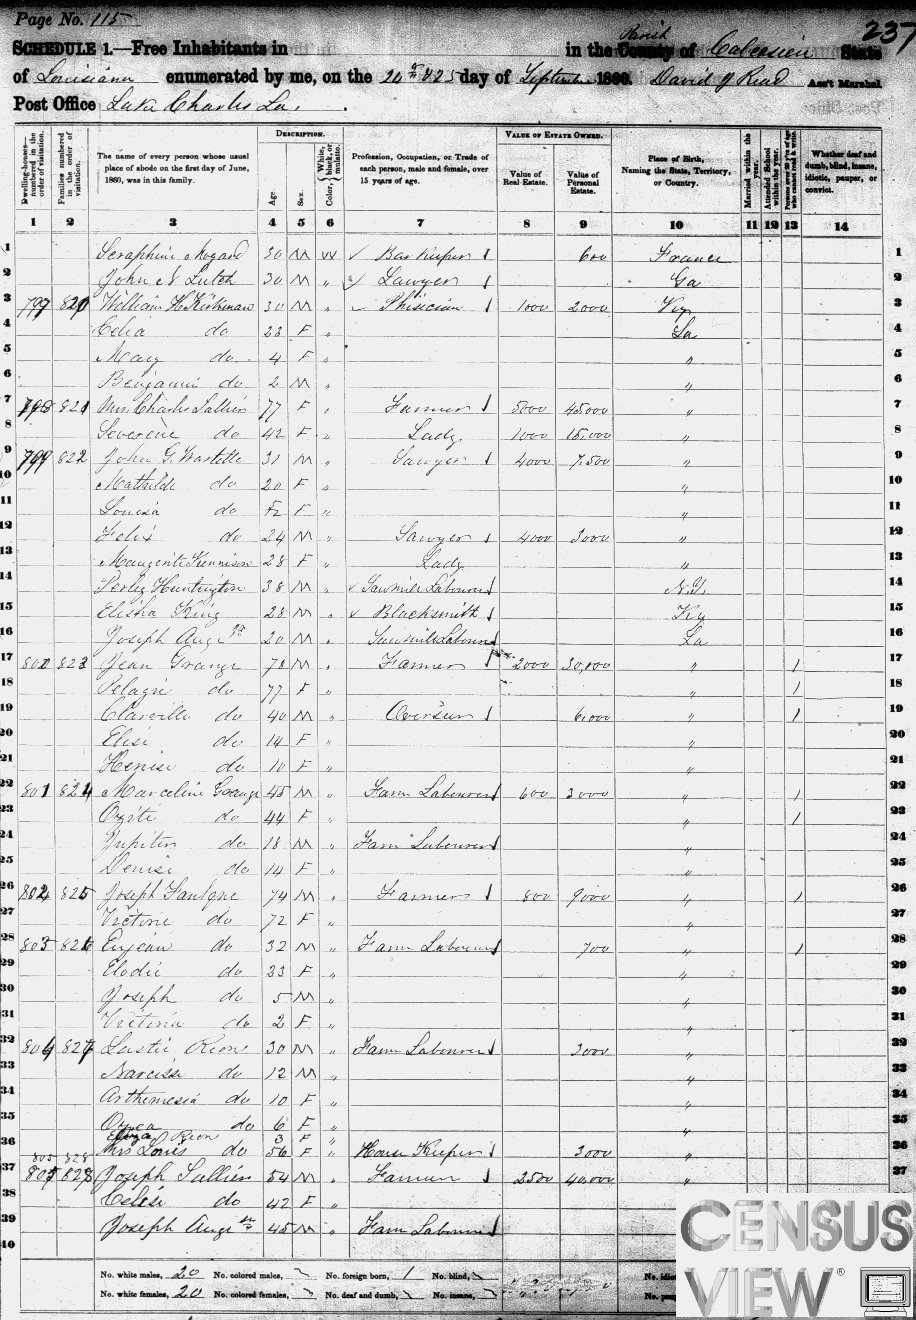 Page No. 115
237
SCHEDULE 1.—Free Inhabitants in in the County of Parish Calcasieu State
of Louisiana enumerated by me, on the 24th & 25 day of September 1860. David J Read Ass't Marshal.
Post Office Lake Charles La.
DESCRIPTION. VALUE OF ESTATE OWNED.
Dwelling-houses—numbered in the order of visitation.
Families numbered in the order of visitation.
The name of every person whose usual place of abode on the first day of June, 1860, was in this family.
Age.
Sex.
Color, White, black, or mulatto.
Profession, Occupation, or Trade of each person, male and female, over 15 years of age.
Value of Real Estate.
Value of Personal Estate.
Place of Birth, Naming the State, Territory, or Country.
Married within the year.
Attended School within the year.
Persons over 20 y'rs of age who cannot read & write.
Whether deaf and dumb, blind, insane, idiotic, pauper, or convict.
1 2 3 4 5 6 7 8 9 10 11 12 13 14
1 Seraphine Mogard 30 M W Bar Keeper 600 France 1
2 John N Lutch 30 M " Lawyer Ga 2
3 797 820 William H Kirkman 30 M " Phisician 1000 2000 Ky 3
4 Celia do 23 F " La 4
5 Mary do 4 F " " 5
6 Benjamin do 2 M " " 6
7 798 821 Mrs. Charles Sallier 77 F " Farmer 5000 45,000 " 7
8 Severene do 42 F " Lady 1000 15,000 " 8
9 799 822 John G. 31 M " Sawyer 4000 7,500 " 9
10 Mathilde do 20 F " " 10
11 Louisa do F " " 11
12 Felix do 24 M " Sawyer 4000 3000 " 12
13 Margerite Kennison 28 F " Lady " 13
14 Huntington 38 M " Sawmill Labourer 14
15 Elisha King 28 M " Blacksmith Ky 15
16 Joseph Auge 20 M " Sawmill Labourer La 16
17 800 823 Jean Grange 78 M " Farmer 2000 30,000 " 1 17
18 Pelagie do 77 F " 1 18
19 Clairville do 40 M " Overseer 6,000 " 1 19
20 Elise do 14 F " " 20
21 Denise do 10 F " " 21
22 801 824 Marceline Grange 45 M " Farm Labourer 600 3000 " 1 22
23 do 44 F " " 1 23
24 Jupiter do 18 M " Farm Labourer " 24
25 Denise do 14 F " " 25
26 802 825 Joseph 74 M " Farmer 800 9000 " 1 26
27 Victorie do 72 F " " 27
28 803 826 Eujean do 32 M " Farm Labourer 700 " 1 28
29 Elodie do 23 F " " 29
30 Joseph do 5 M " " 30
31 Victoria do 2 F " " 31
32 804 827 Lastie Rion 30 M " Farm Labourer 3000 " 32
33 Narcisse do 12 M " " 33
34 Arthemesia do 10 F " " 34
35 do 6 F " " 35
Eliza Rion 3 F "
36 805 828 Mrs Louis do 56 F " House Keeper 3000 " 36
37 805 828 Joseph Sallier 54 M " Farmer 2500 40,000 " 37
38 Celese do 42 F " 38
39 Joseph Auge 45 M " Farm Labourer 39
40
No. white males, 20 No. colored males, No. foreign born, 1 No. blind, No.
No. white females, 20 No. colored females, No. deaf and dumb, No. insane, No.
CENSUS
VIEW®